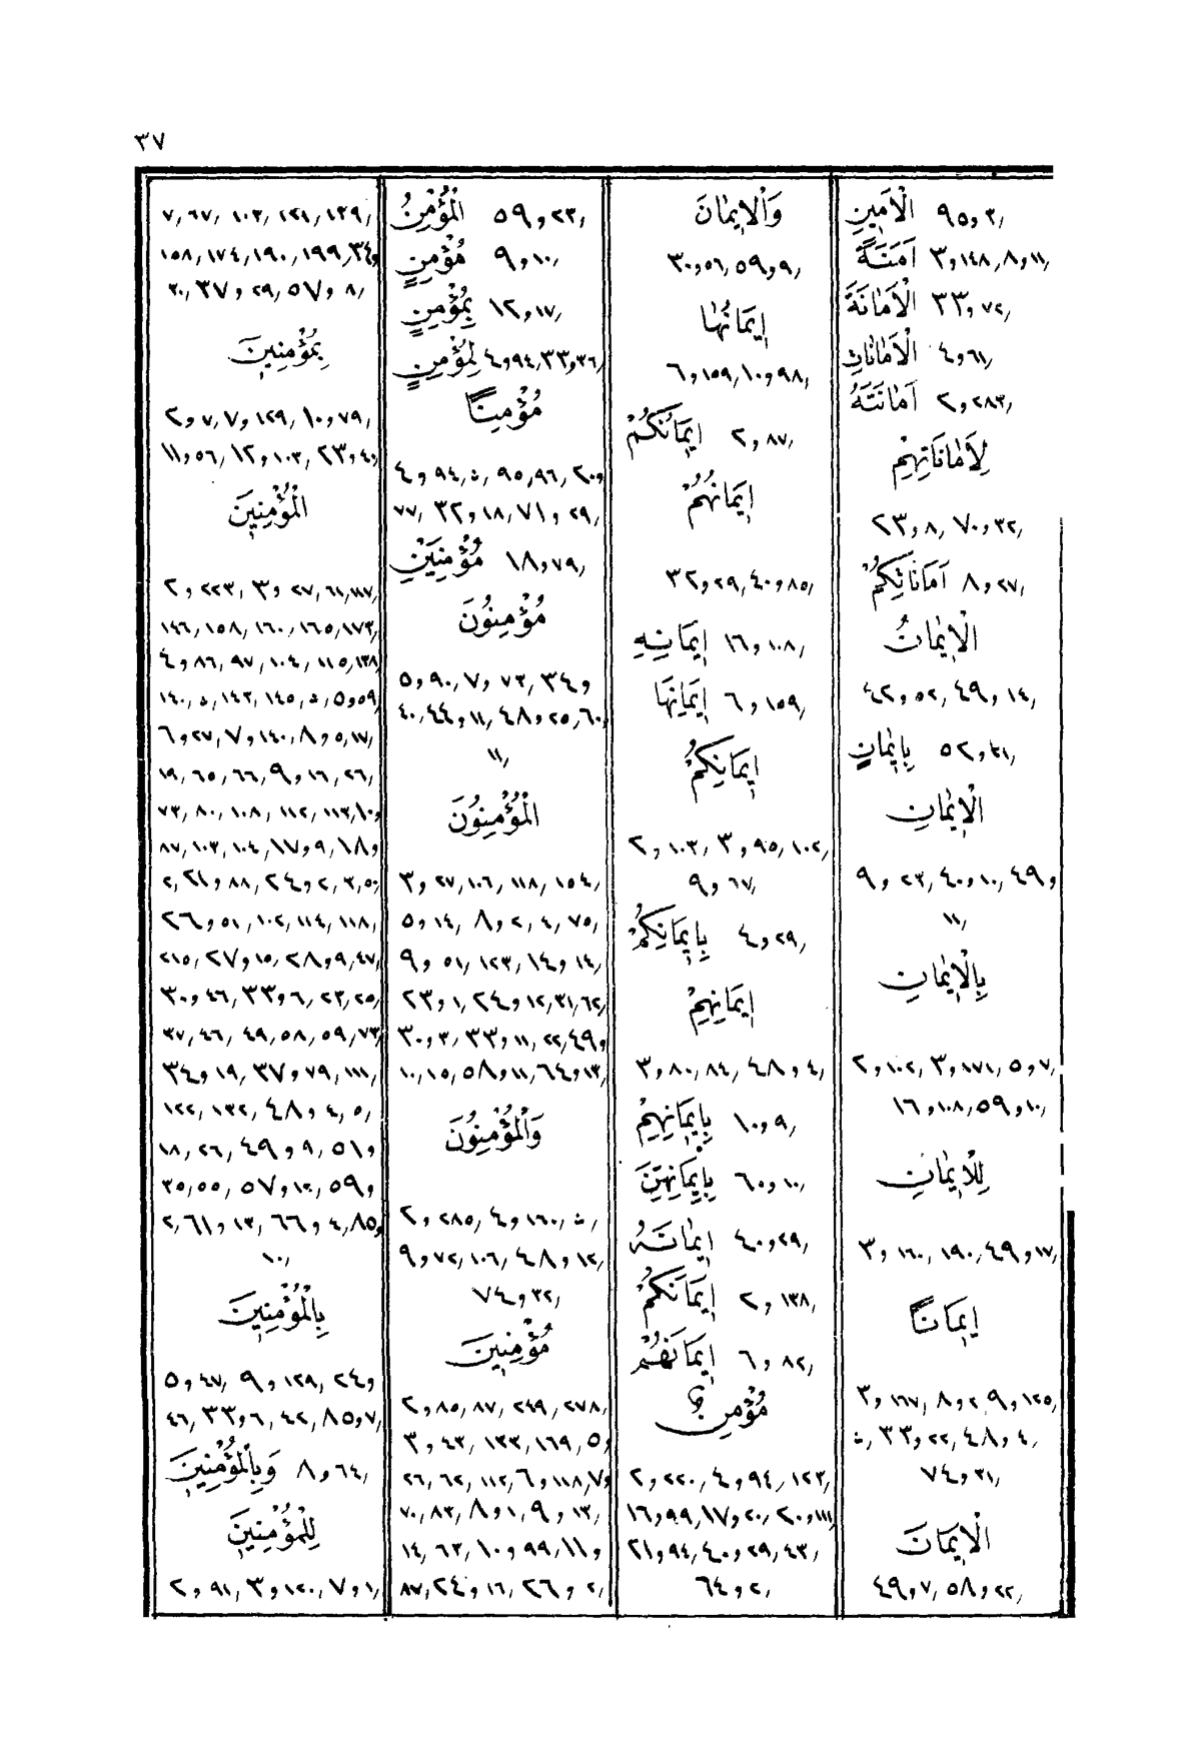 ٣٧
الْاَمِينِ ٩٥و٣/
اَمَنَةً ٣و١٤٨/ ٨و١١/
الْاَمَانَةَ ٣٣و٧٢/
الْاَمَانَاتِ ٤و٦١/
اَمَانَتَهُ ٢و٢٨٣/
لِاَمَانَاتِهِمْ
٢٣و٨/ ٧٠و٣٢/
اَمَانَاتِكُمْ ٨و٢٧/
الْاِيمَانُ
٤٢و٥٢/ ٤٩و١٤/
بِاِيمَانٍ ٥٢و٢١/
الْاِيمَانِ
٩و٢٣/ ٤٠و١٠/ ٤٩و
١١/
بِالْاِيمَانِ
٢و١٠٢/ ٣و١٧١/ ٥و٧/
١٦و١٠٨/ ٥٩و١٠/
لِلْاِيمَانِ
٣و١٦٠/ ١٩٠/ ٤٩و١٧/
اِيمَانًا
٣و١٦٧/ ٨و٢/ ٩و١٢٥/
٣٣و٢٢/ ٤٨و٤/
٧٤و٣١/
الْاِيمَانَ
٤٩و٧/ ٥٨و٢٢/
وَالْاِيمَانَ
٣٠و٥٦/ ٥٩و٩/
اِيمَانُهَا
٦و١٥٩/ ١٠و٩٨/
اِيمَانُكُمْ ٢و٨٧/
اِيمَانُهُمْ
٣٢و٢٩/ ٤٠و٨٥/
اِيمَانِهِ ١٦و١٠٨/
اِيمَانِهَا ٦و١٥٩/
اِيمَانِكُمْ
٢و١٠٣/ ٣و٩٥/ ١٠٢/
٩و٦٧/
بِاِيمَانِكُمْ ٤و٢٩/
اِيمَانِهِمْ
٣و٨٠/ ٨٤/ ٤٨و٤/
بِاِيمَانِهِمْ ١٠و٩/
بِاِيمَانِهِنَّ ٦٠و١٠/
اِيمَانَهُ ٤٠و٢٩/
اِيمَانَكُمْ ٢و١٣٨/
اِيمَانَهُمْ ٦و٨٢/
مُؤْمِنٌ
٢و٢٢٠/ ٤و٩٤/ ١٢٣/
١٦و٩٩/ ١٧و٢٠/ ٢٠و١١١/
٢١و٩٤/ ٤٠و٢٩/ ٤٣/
٦٤و٢/
الْمُؤْمِنُ ٥٩و٢٣/
مُؤْمِنٍ ٩و١٠/
بِمُؤْمِنٍ ١٢و١٧/
لِمُؤْمِنٍ ٤و٩٤/ ٣٣و٣٦/
مُؤْمِنًا
٤و٩٤/ ٩٥/ ٩٦/ ٢٠و
٧٧/ ٣٢و١٨/ ٧١و٢٩/
مُؤْمِنَيْنِ ١٨و٧٩/
مُؤْمِنُونَ
٥و٩٠/ ٧و٧٣/ ٣٤و
٤٠/ ٤٤و١١/ ٤٨و٢٥/ ٦٠و
١١/
الْمُؤْمِنُونَ
٣و٢٧/ ١٠٦/ ١١٨/ ١٥٤/
٥و١٤/ ٨و٢/ ٤/ ٧٥/
٩و٥١/ ١٢٣/ ١٤و١٤/
٢٣و١/ ٢٤و١٢/ ٣١/ ٦٢/
٣٠و٣/ ٣٣و١١/ ٢٢/ ٤٩و
١٠/ ١٥/ ٥٨و١١/ ٦٤و١٣/
وَالْمُؤْمِنُونَ
٢و٢٨٥/ ٤و١٦٠/
٩و٧٢/ ١٠٦/ ٤٨و١٢/
٧٤و٣٢/
مُؤْمِنِينَ
٢و٨٥/ ٨٧/ ٢٤٩/ ٢٧٨/
٣و٤٣/ ١٣٣/ ١٦٩/ ٥و
٢٦/ ٦٢/ ١١٢/ ٦و١١٨/ ٧و
٧٠/ ٨٣/ ٨و١/ ٩و١٣/
١٤/ ٦٢/ ١٠و٩٩/ ١١و
٨٧/ ٢٤و١٦/ ٢٦و٢/
٧/ ٦٧/ ١٠٢/ ١٢١/ ١٣٩/
١٥٨/ ١٧٤/ ١٩٠/ ١٩٩/ ٣٤و
٣٠/ ٣٧و٢٩/ ٥٧و٨/
بِمُؤْمِنِينَ
٢و٧/ ٧و١٢٩/ ١٠و٧٩/
١١و٥٦/ ١٢و١٠٣/ ٢٣و٤٠
الْمُؤْمِنِينَ
٢و٢٢٣/ ٣و٢٧/ ٦١/ ١١٧/
١٤٦/ ١٥٨/ ١٦٠/ ١٦٥/ ١٧٣/
٤و٨٦/ ٩٧/ ١٠٤/ ١١٥/ ١٣٨/
١٤٠/ ١٤٣/ ١٤٥/ ٥و٥٩
٦و٢٧/ ٧و١٤٠/ ٨و٥/ ١٧/
١٩/ ٦٥/ ٦٦/ ٩و١٦/ ٢٦/
٧٣/ ٨٠/ ١٠٨/ ١١٢/ ١١٣/ ١٠و
٨٧/ ١٠٣/ ١٠٤/ ١٧و٩/ ١٨و
٢/ ٢١و٨٨/ ٢٤و٢/ ٣/ ٥٠
٢٦و٥١/ ١٠٢/ ١١٤/ ١١٨/
٢١٥/ ٢٧و١٥/ ٢٨و٩/ ٤٧/
٣٠و٤٦/ ٣٣و٦/ ٢٣/ ٢٥/
٣٧/ ٤٦/ ٤٩/ ٥٨/ ٥٩/ ٧٣/
٣٤و١٩/ ٣٧و٧٩/ ١١١/
١٢٢/ ١٣٢/ ٤٨و٤/ ٥/
١٨/ ٢٦/ ٤٩و٩/ ٥١و
٣٥/ ٥٥/ ٥٧و١٢/ ٥٩و
٢/ ٦١و١٣/ ٦٦و٤/ ٨٥و
١٠/
بِالْمُؤْمِنِينَ
٥و٤٧/ ٩و١٢٩/ ٢٤و
٤٦/ ٣٣و٦/ ٤٢/ ٨٥و٧/
وَبِالْمُؤْمِنِينَ ٨و٦٤/
لِلْمُؤْمِنِينَ
٢و٩١/ ٣و١٢٠/ ٧و١/